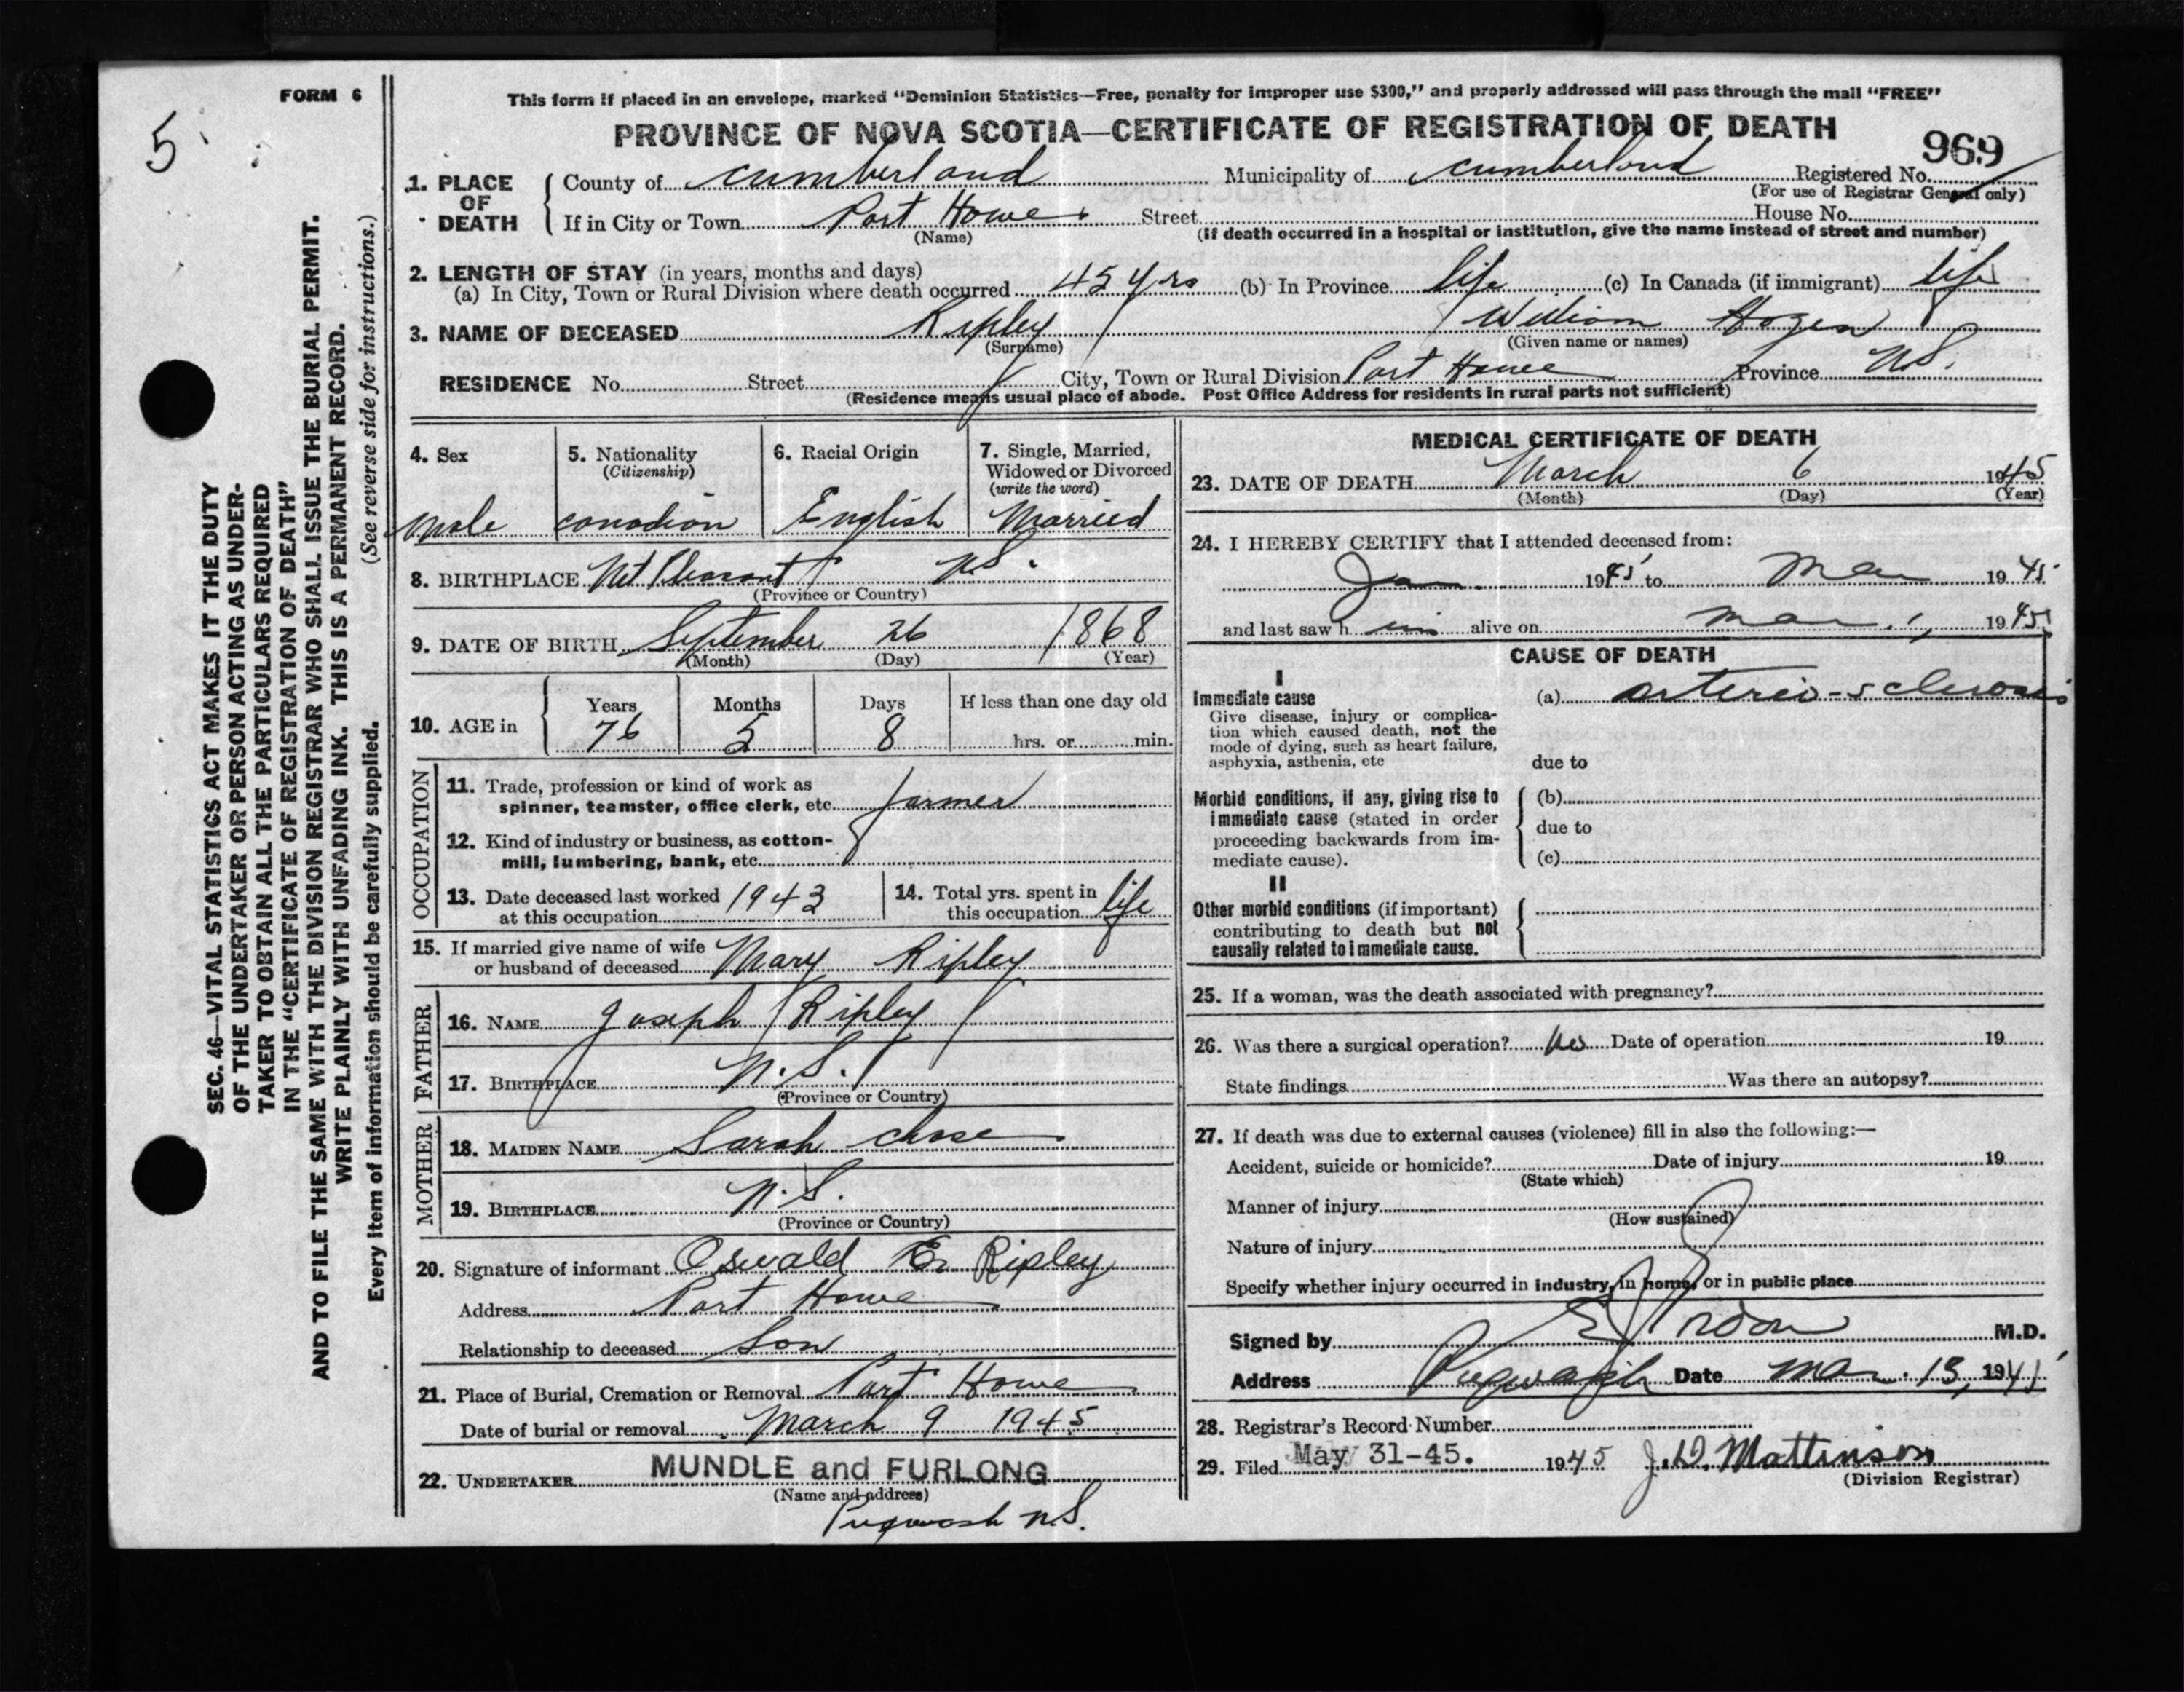 FORM 6
5
This form if placed in an envelope, marked “Dominion Statistics—Free, penalty for improper use $300,” and properly addressed will pass through the mail “FREE”
PROVINCE OF NOVA SCOTIA—CERTIFICATE OF REGISTRATION OF DEATH
969
1. PLACE OF DEATH { County of cumberland Municipality of cumberland Registered No.
(For use of Registrar General only)
If in City or Town Port Howe Street House No.
(Name) (If death occurred in a hospital or institution, give the name instead of street and number)
2. LENGTH OF STAY (in years, months and days)
(a) In City, Town or Rural Division where death occurred 45 yrs (b) In Province life (c) In Canada (if immigrant) life
3. NAME OF DECEASED Ripley William Hogen
(Surname) (Given name or names)
RESIDENCE No. Street City, Town or Rural Division Port Howe Province N.S.
(Residence means usual place of abode. Post Office Address for residents in rural parts not sufficient)
4. Sex 5. Nationality 6. Racial Origin 7. Single, Married,
(Citizenship) Widowed or Divorced
(write the word)
male canadian English Married
8. BIRTHPLACE Mt Pleasant N.S.
(Province or Country)
9. DATE OF BIRTH September 26 1868
(Month) (Day) (Year)
10. AGE in { Years Months Days If less than one day old
76 5 8 hrs. or min.
OCCUPATION
11. Trade, profession or kind of work as
spinner, teamster, office clerk, etc. farmer
12. Kind of industry or business, as cotton-
mill, lumbering, bank, etc.
13. Date deceased last worked 1943 14. Total yrs. spent in
at this occupation this occupation life
15. If married give name of wife
or husband of deceased Mary Ripley
FATHER
16. NAME Joseph Ripley
17. BIRTHPLACE N.S.
(Province or Country)
MOTHER
18. MAIDEN NAME Sarah chase
19. BIRTHPLACE N.S.
(Province or Country)
20. Signature of informant Oswald E. Ripley
Address Port Howe
Relationship to deceased Son
21. Place of Burial, Cremation or Removal Port Howe
Date of burial or removal March 9 1945
22. UNDERTAKER MUNDLE and FURLONG
(Name and address)
Pugwash N.S.
MEDICAL CERTIFICATE OF DEATH
23. DATE OF DEATH March 6 1945
(Month) (Day) (Year)
24. I HEREBY CERTIFY that I attended deceased from:
Jan. 1945 to Mar 19 45
and last saw h im alive on Mar. 1, 19 45
CAUSE OF DEATH
I
Immediate cause (a) arterio-sclerosis
Give disease, injury or complica-
tion which caused death, not the
mode of dying, such as heart failure,
asphyxia, asthenia, etc due to
Morbid conditions, if any, giving rise to { (b)
immediate cause (stated in order due to
proceeding backwards from im-
mediate cause). (c)
II
Other morbid conditions (if important)
contributing to death but not
causally related to immediate cause.
25. If a woman, was the death associated with pregnancy?
26. Was there a surgical operation? Date of operation 19
State findings Was there an autopsy?
27. If death was due to external causes (violence) fill in also the following:—
Accident, suicide or homicide? Date of injury 19
(State which)
Manner of injury
(How sustained)
Nature of injury
Specify whether injury occurred in industry, in home, or in public place
Signed by M.D.
Address Pugwash Date Mar. 13, 1945
28. Registrar's Record Number
29. Filed May 31-45. 1945 J.D. Mattinson
(Division Registrar)
SEC. 46—VITAL STATISTICS ACT MAKES IT THE DUTY
OF THE UNDERTAKER OR PERSON ACTING AS UNDER-
TAKER TO OBTAIN ALL THE PARTICULARS REQUIRED
IN THE “CERTIFICATE OF REGISTRATION OF DEATH”
AND TO FILE THE SAME WITH THE DIVISION REGISTRAR WHO SHALL ISSUE THE BURIAL PERMIT.
WRITE PLAINLY WITH UNFADING INK. THIS IS A PERMANENT RECORD.
Every item of information should be carefully supplied. (See reverse side for instructions.)